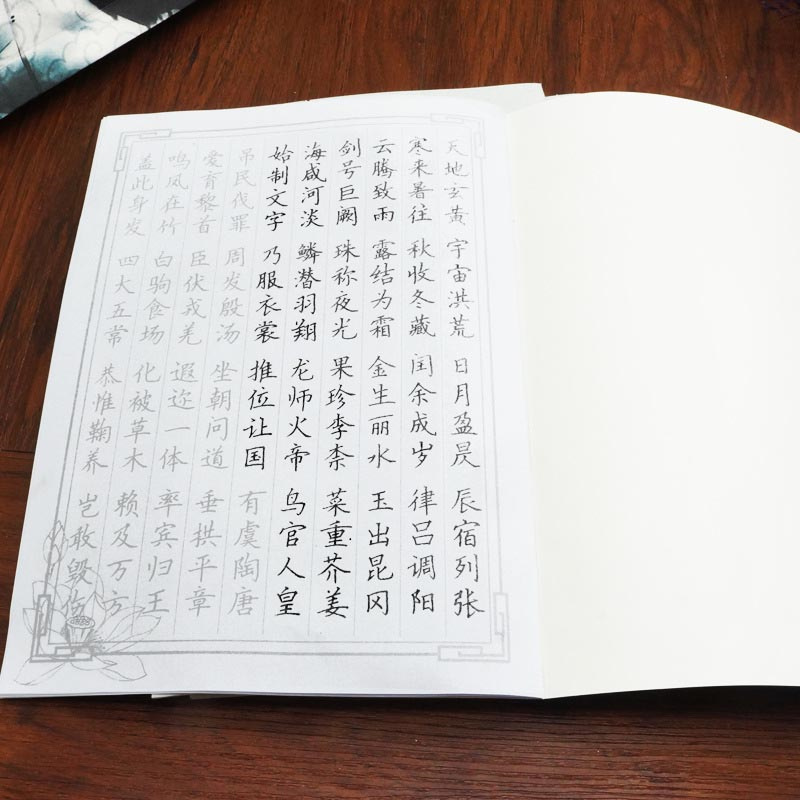 天地玄黄 宇宙洪荒 日月盈昃 辰宿列张
寒来暑往 秋收冬藏 闰余成岁 律吕调阳
云腾致雨 露结为霜 金生丽水 玉出昆冈
剑号巨阙 珠称夜光 果珍李柰 菜重芥姜
海咸河淡 鳞潜羽翔 龙师火帝 鸟官人皇
始制文字 乃服衣裳 推位让国 有虞陶唐
吊民伐罪 周发殷汤 坐朝问道 垂拱平章
爱育黎首 臣伏戎羌 遐迩一体 率宾归王
鸣凤在竹 白驹食场 化被草木 赖及万方
盖此身发 四大五常 恭惟鞠养 岂敢毁伤